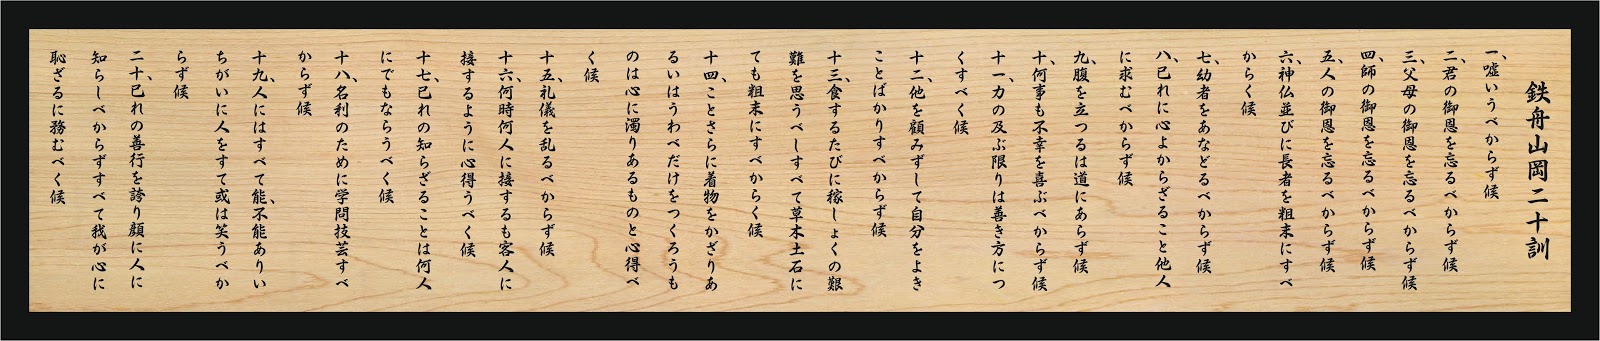 鉄舟山岡二十訓
一、嘘いうべからず候
二、君の御恩を忘るべからず候
三、父母の御恩を忘るべからず候
四、師の御恩を忘るべからず候
五、人の御恩を忘るべからず候
六、神仏並びに長者を粗末にすべ
からく候
七、幼者をあなどるべからず候
八、己れに心よからざること他人
に求むべからず候
九、腹を立つるは道にあらず候
十、何事も不幸を喜ぶべからず候
十一、力の及ぶ限りは善き方につ
くすべく候
十二、他を顧みずして自分をよき
ことばかりすべからず候
十三、食するたびに稼しょくの艱
難を思うべしすべて草木土石に
ても粗末にすべからく候
十四、ことさらに着物をかざりあ
るいはうわべだけをつくろうも
のは心に濁りあるものと心得べ
く候
十五、礼儀を乱るべからず候
十六、何時何人に接するも客人に
接するように心得うべく候
十七、己れの知らざることは何人
にでもならうべく候
十八、名利のために学問技芸すべ
からず候
十九、人にはすべて能、不能ありい
ちがいに人をすて或は笑うべか
らず候
二十、己れの善行を誇り顔に人に
知らしべからずすべて我が心に
恥ざるに務むべく候